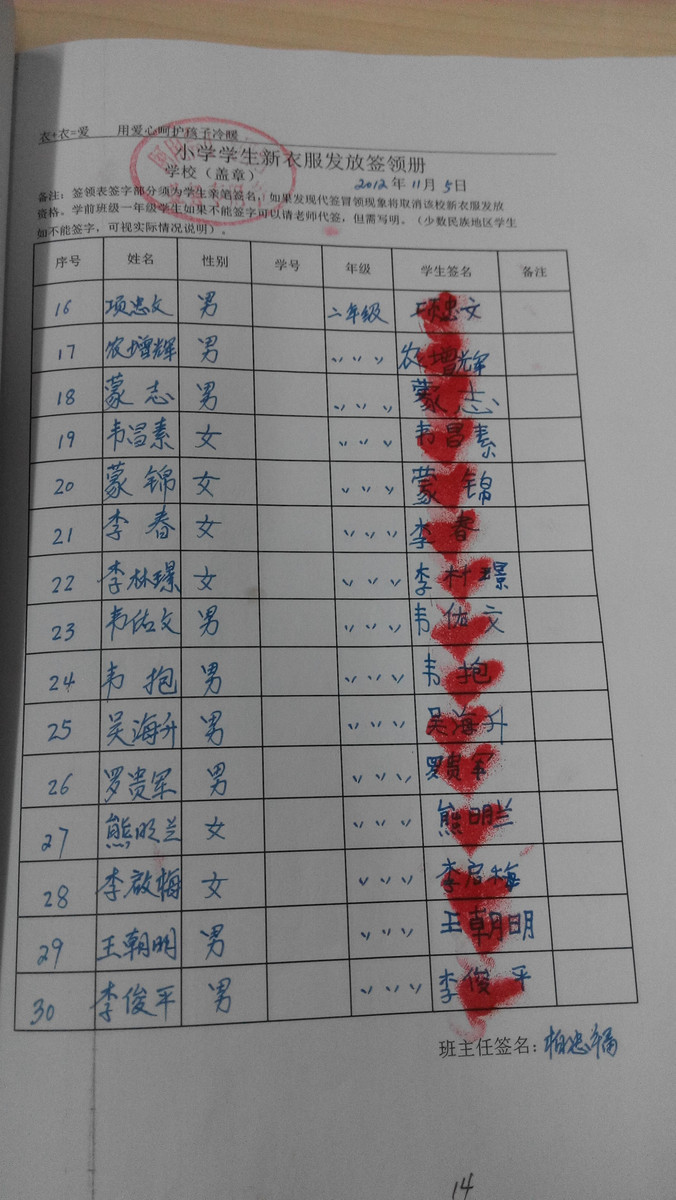 衣+衣=爱 用爱心呵护孩子冷暖
小学学生新衣服发放签领册
学校（盖章）
2012年11月5日
备注：签领表签字部分须为学生亲笔签名，如果发现代签冒领现象将取消该校新衣服发放
资格。学前班级一年级学生如果不能签字可以请老师代签，但需写明。（少数民族地区学生
如不能签字，可视实际情况说明）。
序号 姓名 性别 学号 年级 学生签名 备注
16 项忠文 男 二年级 项忠文
17 农增辉 男 〃 〃 〃 农增辉
18 蒙志 男 〃 〃 〃 蒙志
19 韦昌素 女 〃 〃 〃 韦昌素
20 蒙锦 女 〃 〃 〃 蒙锦
21 李春 女 〃 〃 〃 李春
22 李林璟 女 〃 〃 〃 李林璟
23 韦佑文 男 〃 〃 〃 韦佑文
24 韦抱 男 〃 〃 〃 韦抱
25 吴海升 男 〃 〃 〃 吴海升
26 罗贵军 男 〃 〃 〃 罗贵军
27 熊明兰 女 〃 〃 〃 熊明兰
28 李啟梅 女 〃 〃 〃 李启梅
29 王朝明 男 〃 〃 〃 王朝明
30 李俊平 男 〃 〃 〃 李俊平
班主任签名：柏忠福
14